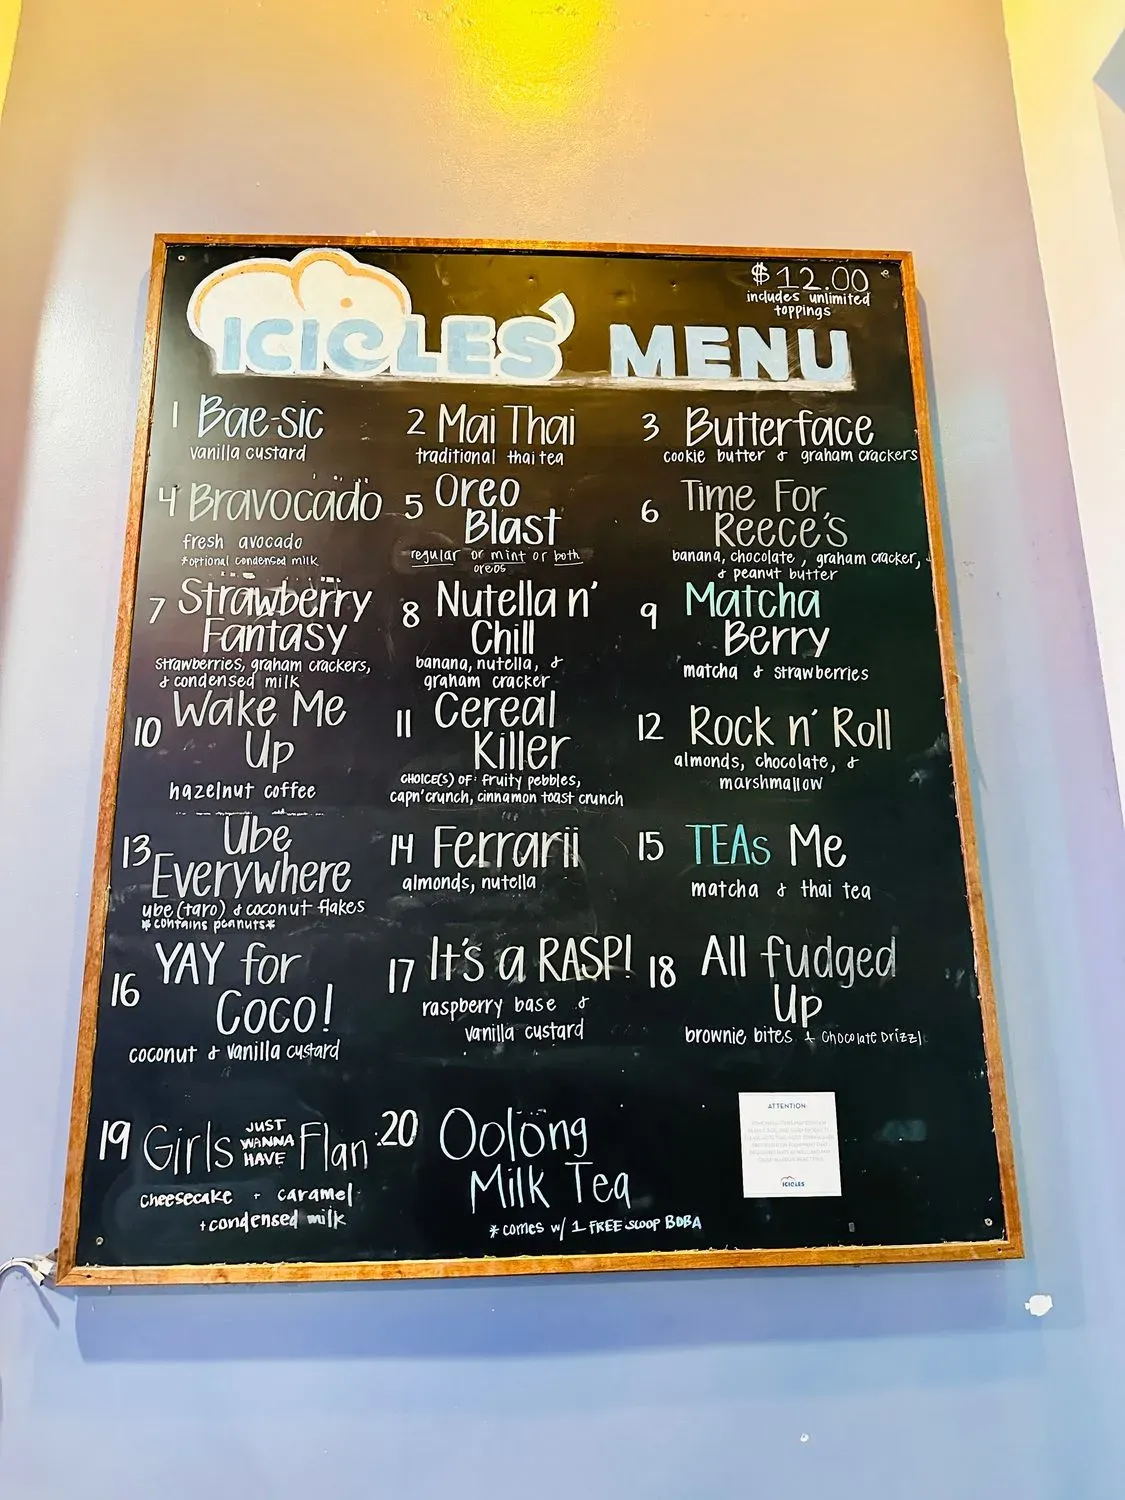 $12.00
includes unlimited
toppings
ICICLES' MENU
1 Bae-sic
vanilla custard
2 Mai Thai
traditional thai tea
3 Butterface
cookie butter & graham crackers
4 Bravocado
fresh avocado
*optional condensed milk
5 Oreo
Blast
regular or mint or both
oreos
6 Time For
Reece's
banana, chocolate, graham cracker,
& peanut butter
7 Strawberry
Fantasy
strawberries, graham crackers,
& condensed milk
8 Nutella n'
Chill
banana, nutella, &
graham cracker
9 Matcha
Berry
matcha & strawberries
10 Wake Me
Up
hazelnut coffee
11 Cereal
Killer
CHOICE(S) OF: fruity pebbles,
capn'crunch, cinnamon toast crunch
12 Rock n' Roll
almonds, chocolate, &
marshmallow
13 Ube
Everywhere
ube (taro) & coconut flakes
*contains peanuts*
14 Ferrarii
almonds, nutella
15 TEAs Me
matcha & thai tea
16 YAY for
Coco!
coconut & vanilla custard
17 It's a RASP!
raspberry base &
vanilla custard
18 All fudged
Up
brownie bites + Chocolate Drizzl
19 Girls JUST WANNA HAVE Flan
cheesecake + caramel
+ condensed milk
20 Oolong
Milk Tea
*comes w/ 1 FREE SCOOP BOBA
ATTENTION:
ICICLES